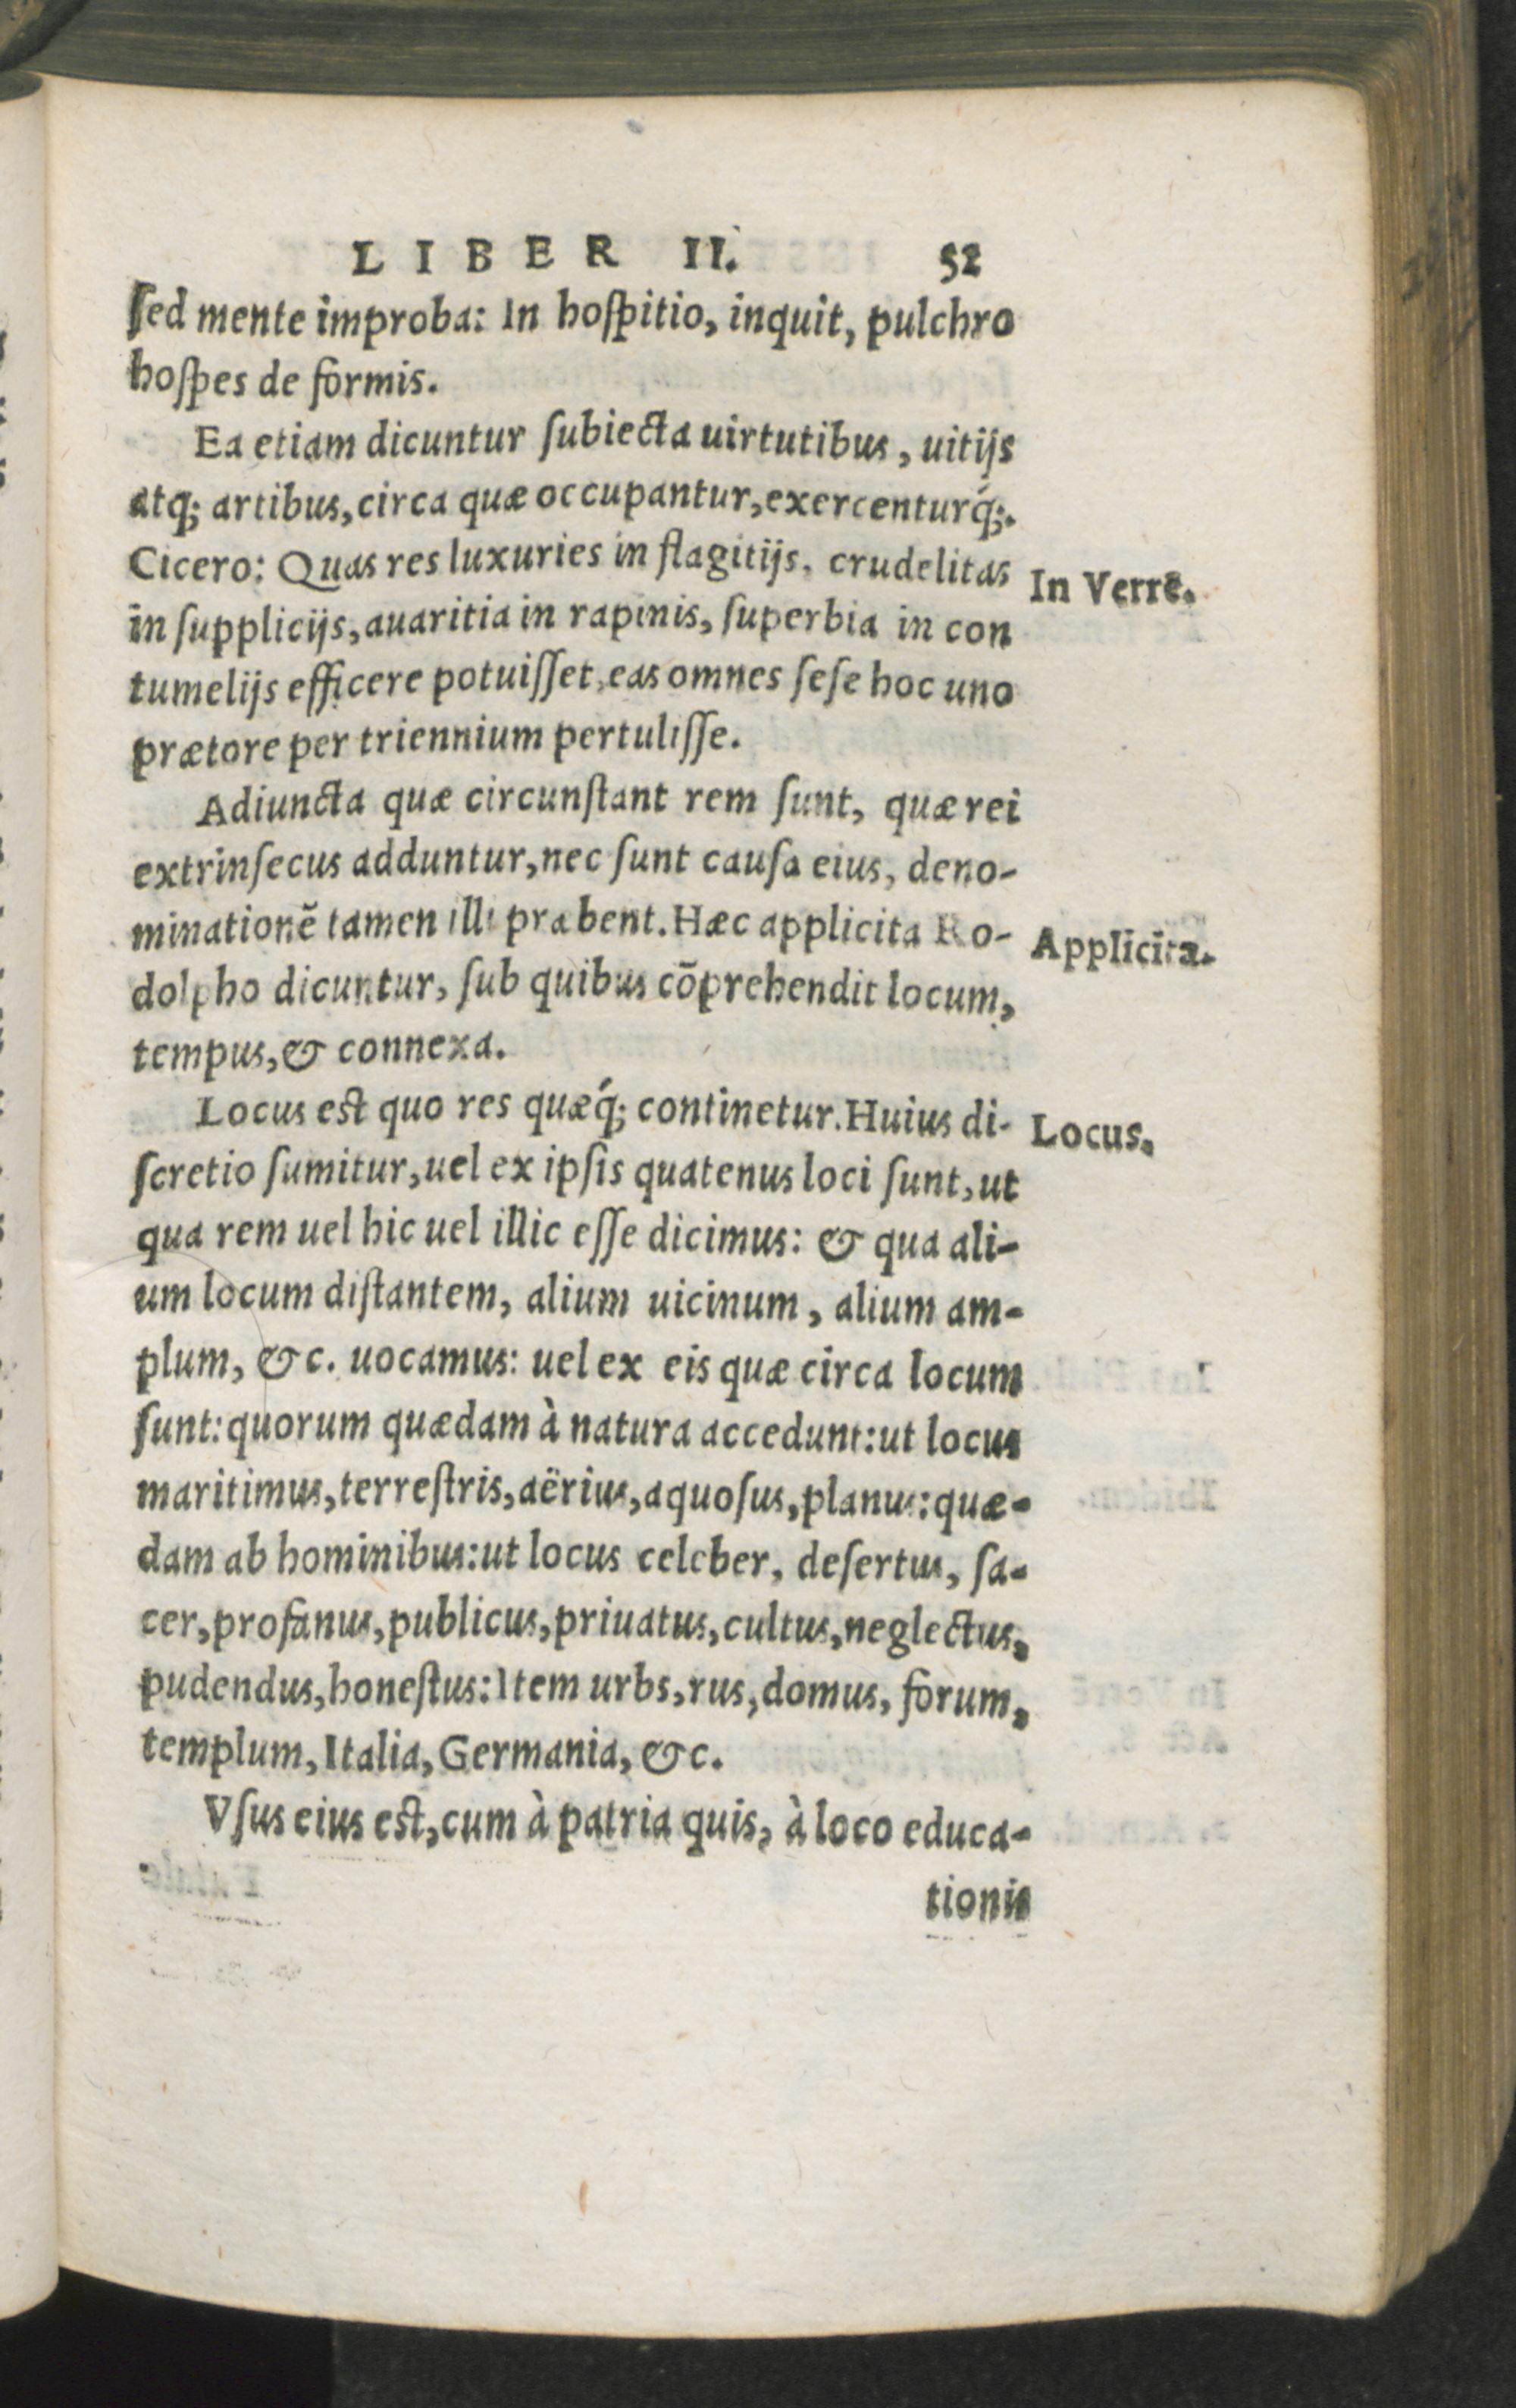 LIBER II. 52
ſed mente improba: In hoſpitio, inquit, pulchro
hoſpes de formis.
Ea etiam dicuntur ſubiecta uirtutibus, uitijs
atq; artibus, circa quæ occupantur, exercenturq́;.
Cicero: Quas res luxuries in flagitijs, crudelitas
In Verrē.
in ſupplicijs, auaritia in rapinis, ſuperbia in con
tumelijs efficere potuiſſet, eas omnes ſeſe hoc uno
prætore per triennium pertuliſſe.
Adiuncta quæ circunſtant rem ſunt, quæ rei
extrinſecus adduntur, nec ſunt cauſa eius, deno-
minationẽ tamen illi præbent. Hæc applicita Ro-
Applicita.
dolpho dicuntur, ſub quibus cõprehendit locum,
tempus, & connexa.
Locus est quo res quæq́; continetur. Huius di-
Locus.
ſcretio ſumitur, uel ex ipſis quatenus loci ſunt, ut
qua rem uel hic uel illic eſſe dicimus: & qua ali-
um locum diſtantem, alium uicinum, alium am-
plum, &c. uocamus: uel ex eis quæ circa locum
ſunt: quorum quædam à natura accedunt: ut locus
maritimus, terreſtris, aërius, aquoſus, planus: quæ-
dam ab hominibus: ut locus celeber, deſertus, ſa-
cer, profanus, publicus, priuatus, cultus, neglectus,
pudendus, honeſtus: Item urbs, rus, domus, forum,
templum, Italia, Germania, &c.
Vſus eius est, cum à patria quis, à loco educa-
tionis